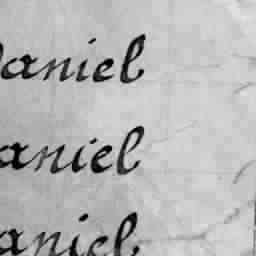 Daniel
aniel
aniel